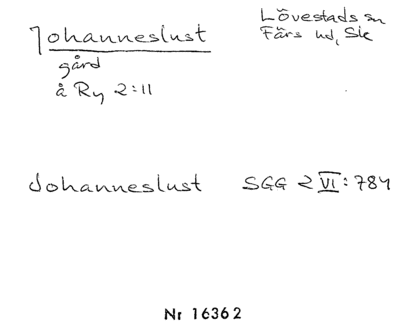 Johanneslust
Lövestads sn
Färs hd, Sk
gård
å Ry 2:11
Johanneslust SGG 2 VI: 784
Nr 16362